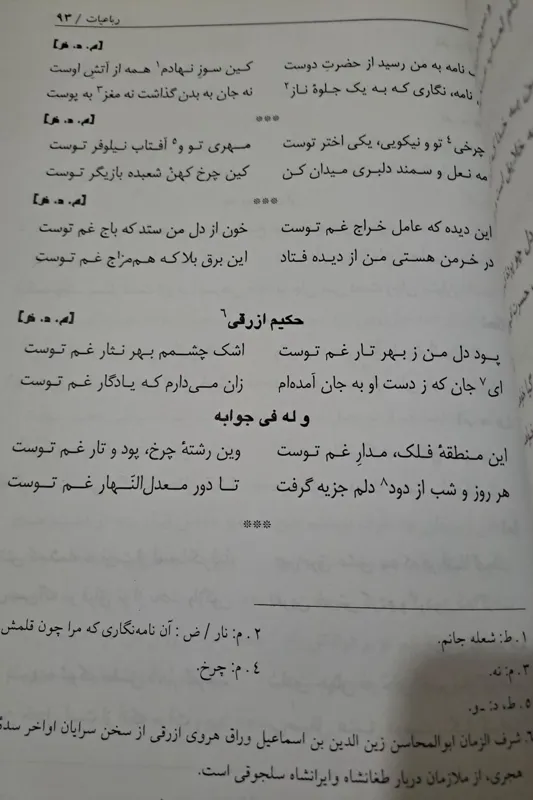 رباعیات / ۹۳
[م. د. ض]
نامه به من رسید از حضرتِ دوست کین سوزِ نهادم۱ همه از آتشِ اوست
نامه، نگاری که به یک جلوهٔ ناز۲ نه جان به بدن گذاشت نه مغز۳ به پوست
*** [م. د. ض]
چرخی۴ تو و نیکویی، یکی اختر توست مهری تو و۵ آفتاب نیلوفر توست
مه نعل و سمند دلبری میدان کن کین چرخ کهنْ شعبده بازیگر توست
*** [م. د. ض]
این دیده که عامل خراج غم توست خون از دل من ستد که باج غم توست
در خرمن هستی من از دیده فتاد این برق بلا که هم‌مزاج غم توست
حکیم ازرقی۶ [م. د. ض]
پود دل من ز بهر تار غم توست اشک چشمم بهر نثار غم توست
ای۷ جان که ز دست او به جان آمده‌ام زان می‌دارم که یادگار غم توست
و له فی جوابه
این منطقهٔ فلک، مدارِ غم توست وین رشتهٔ چرخ، پود و تار غم توست
هر روز و شب از دود۸ دلم جزیه گرفت تا دور معدل‌النَهار غم توست
***
۱. ط: شعله جانم. ۲. م: نار / ض: آن نامه‌نگاری که مرا چون قلمش
۳. م: نه. ۴. م: چرخ.
۵. ط، د: ـ و.
۶. شرف الزمان ابوالمحاسن زین الدین بن اسماعیل وراق هروی ازرقی از سخن سرایان اواخر
هجری، از ملازمان دربار طغانشاه و ایرانشاه سلجوقی است.